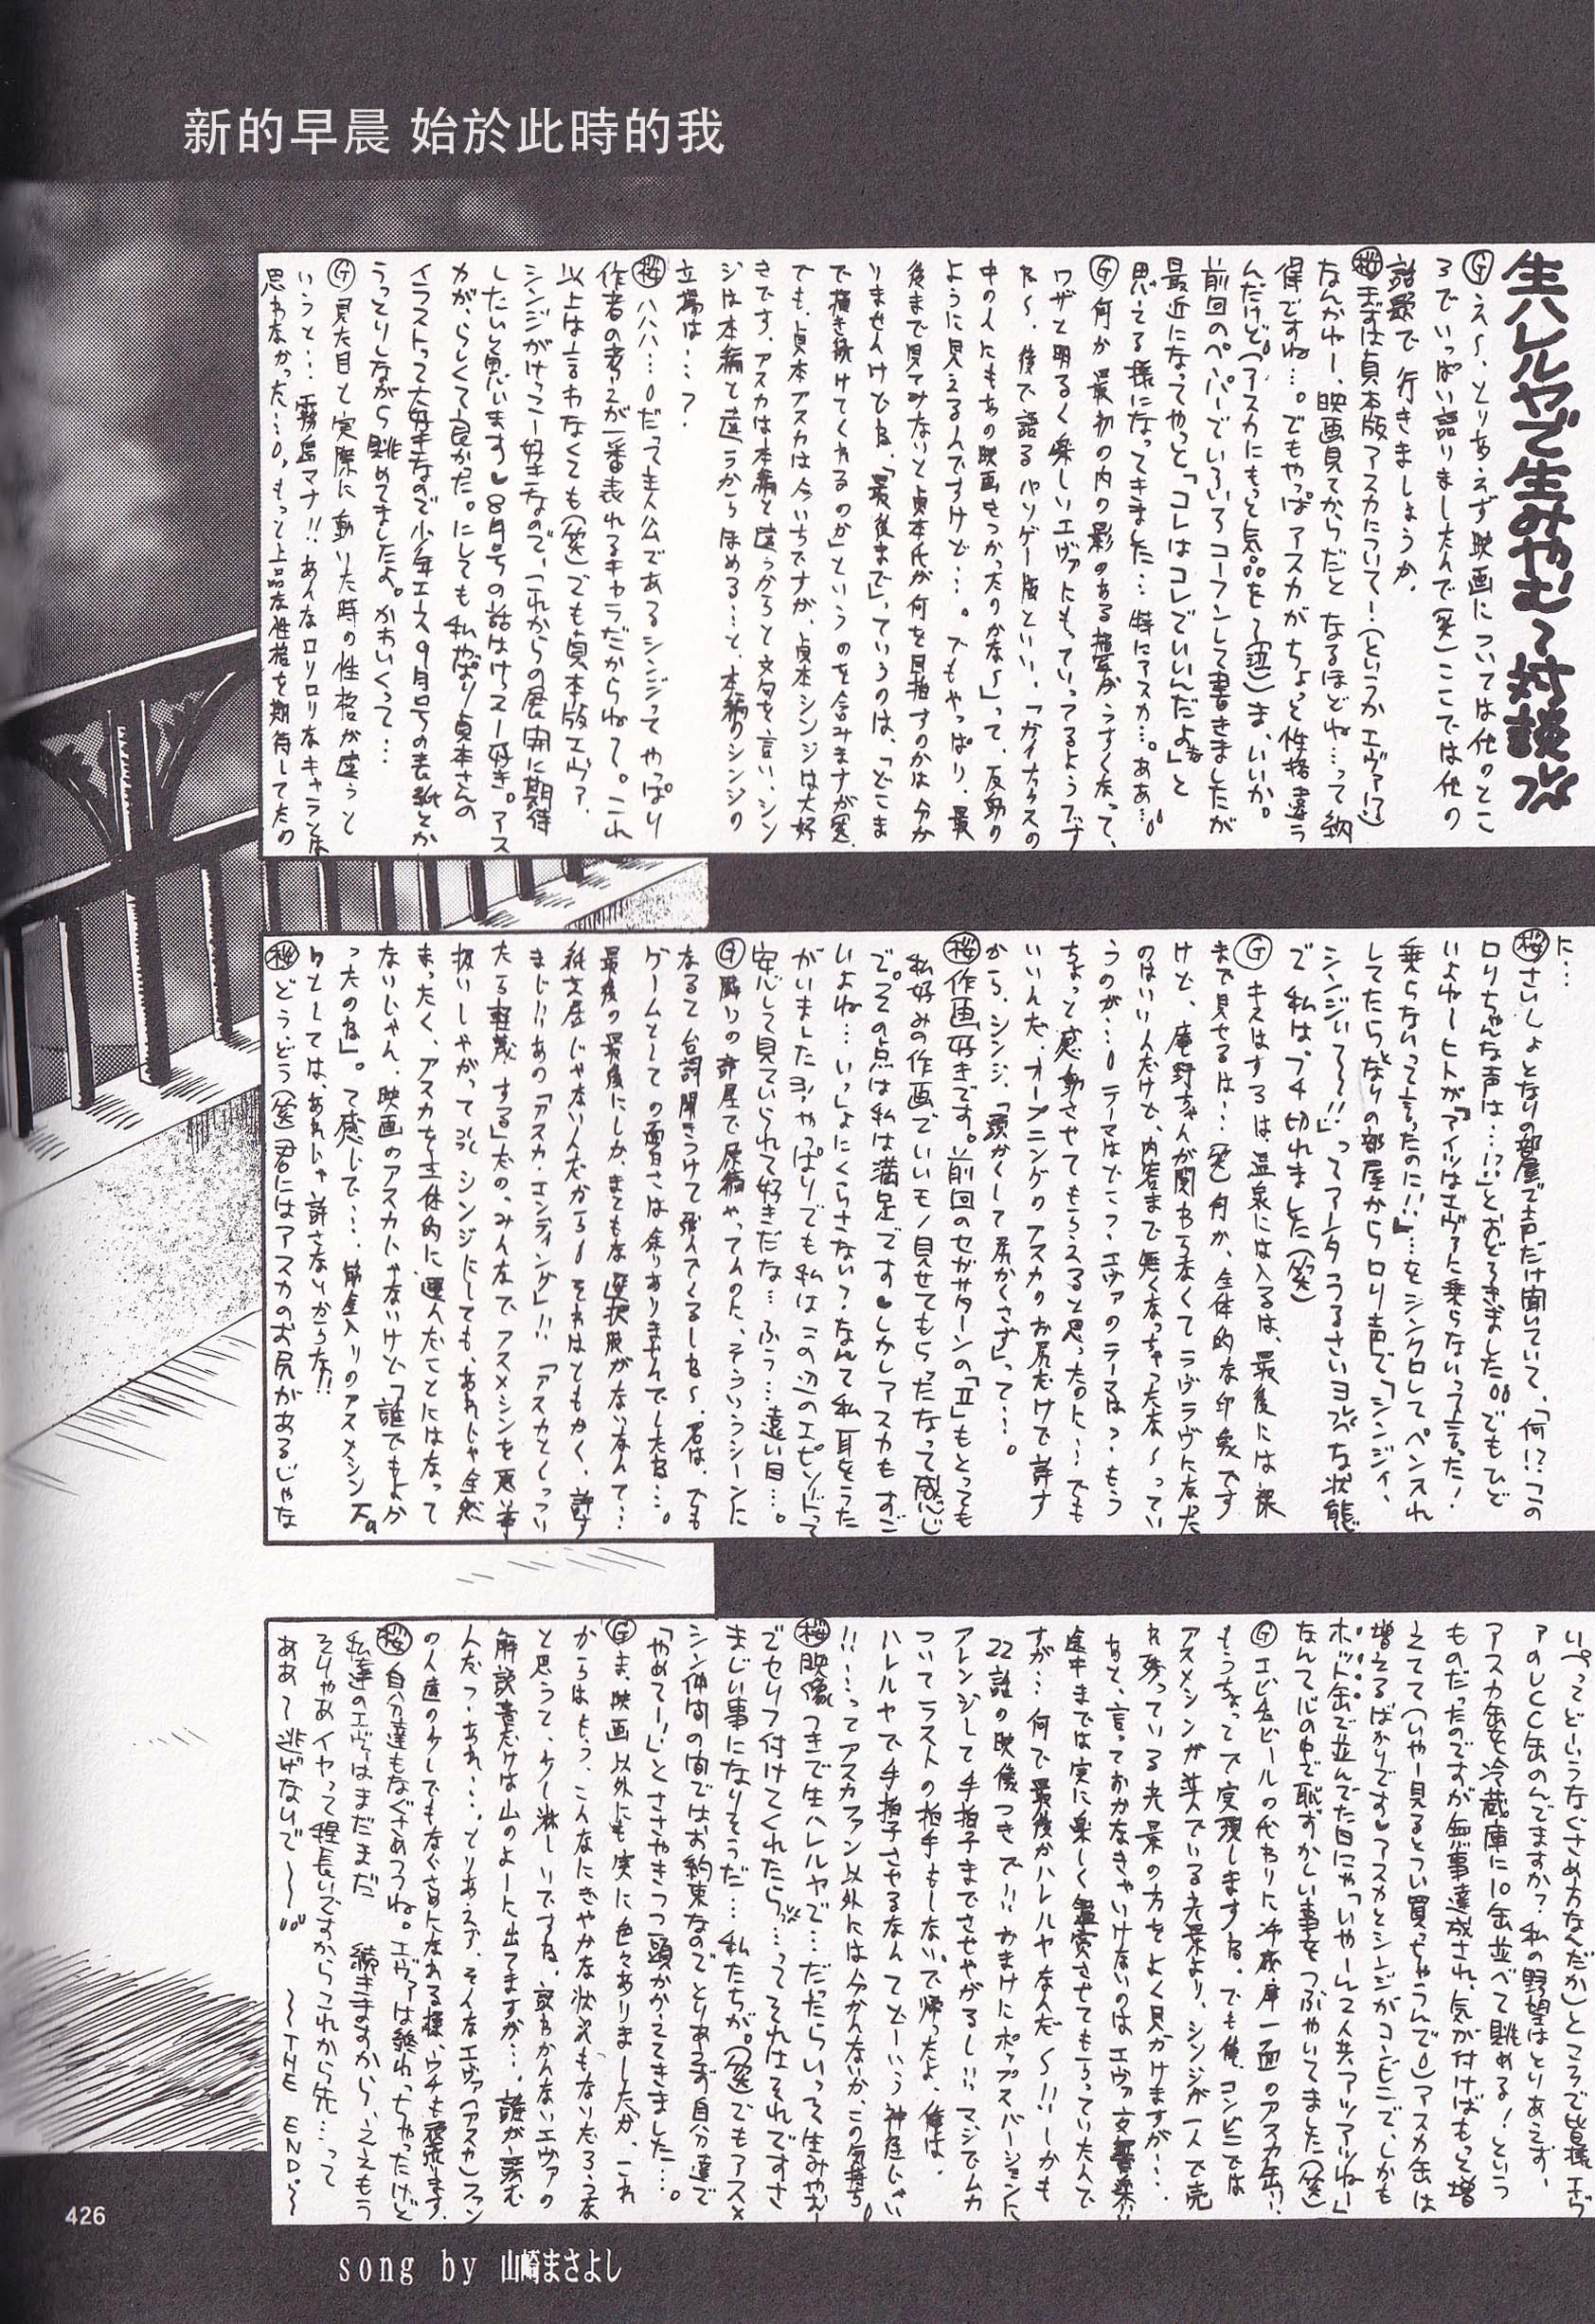 新的早晨 始於此時的我
生ハレルヤで生みやむ〜対談
Ⓖえ〜、とりあえず映画については他のとこ
ろでいっぱい語りましたんで(笑)ここでは他の
話題で行きましょうか。
桜まずは貞本版アスカについて!(というかエヴァ!?)
なんかねー、映画見てからだと なるほどね…って納
得ですね…。でもやっぱアスカがちょっと性格違う
んだけど(アスカにもっと気品を〜(泣))ま、いいか。
前回のペーパーでいろいろコーフンして書きましたが
最近になってやっと「コレはコレでいいんだよな」と
思える様になってきました…特にアスカ…。ああ…
Ⓖ何か最初の内の影のある描写がうすくなって、
ワザと明るく楽しいエヴァにもっていってるようです
ね〜、後で語るパソゲー版といい、「ガイナックスの
中の人にもあの映画きつかったのかな〜」って、反動の
ように見えるんですけど…。でもやっぱり、最
後まで見てみないと貞本氏が何を目指すのかは分か
りませんけどね。「最後まで」っていうのは、「どこま
で描き続けてくれるのか」というのを含みますが(笑)
でも、貞本アスカは今いちですが、貞本シンジは大好
きです。アスカは本編と違うからと文句を言い、シン
ジは本編と違うからほめる…と、本編のシンジの
立場は…?
桜ハハハ…。だって主人公であるシンジってやっぱり
作者の考えが一番表れるキャラだからね〜。これ
以上は言わなくても(笑)でも貞本版エヴァ、
シンジがけっこー好きなので、これからの展開に期待
したいと思います♥8月号の話はけっこー好き。アス
カが、らしくて良かった。にしても私やっぱり貞本さんの
イラストって大好きなので少年エース9月号の表紙とか
うっとりしながら眺めてましたよ。かわいくって…
Ⓖ見た目と実際に動いた時の性格が違うと
いうと…霧島マナ!!あんなロリロリなキャラとは
思わなかった…。もっと上品な性格を期待してたの
に…
桜さいしょとなりの部屋で声だけ聞いていて、「何!?この
ロリちゃんな声は…!?」とおどろきました。でもひど
いよねーヒトが「アイツはエヴァに乗らないって言った!
乗らないって言ったのに!!」…をシンクロしてペン入れ
してたらとなりの部屋からロリ声で「シンジィ、
シンジィ〜〜!!」ってアータうるさいヨな状態
で私はブチ切れました(笑)
Ⓖキスはするは温泉には入るは、最後には裸
まで見せるは…(笑)何か、全体的な印象です
けど、庵野ちゃんが関わらなくてラヴラヴになった
のはいい人だけど、内容まで無くなっちゃったな〜ってい
うのが…。テーマはどこっ、エヴァのテーマはっ、もう
ちょっと感動させてもらえると思ったのに…でも
いいんだ、オープニングのアスカのお尻だけで許す
から、シンジ、「頭かくして尻かくさず」って…。
桜作画好きです。前回のセガサターンの「II」もとっても
私好みの作画でいいモノ見せてもらったなって感じ
で。その点は私は満足です♥しかしアスカもすご
いよね…いっしょにくらさない?なんて私耳をうた
がいましたヨ!やっぱりでも私はこの辺のエピソードって
安心して見ていられて好きだな…ふう…遠い目…。
Ⓖ隣りの部屋で原稿やってんのに、そういうシーンに
なると台詞聞きつけて飛んでくるしね〜、君は。でも
ゲームとしての面白さは余りありませんでしたね…。
最後の最後にしか、まともな選択肢がないなんて…
紙芝居じゃないんだから。それはともかく、許す
まじ!!あの「アスカ・エンディング」!!「アスカとくっつい
たら軽蔑する」だの、みんなでアスメシンを悪事
扱いしやがって シンジにしても、あれじゃ全然
まったく、アスカを主体的に選んだことにはなって
ないじゃん。映画のアスカじゃないけど「誰でもよか
ったのね」。て感じで…、筋金入りのアスメシン
としては、あれじゃ許さないからな!!
桜どう、どう(笑)君にはアスカのお尻があるじゃな
いぺってどーいうなぐさめ方なんだか)ところで皆様エヴ
ァのUCC缶のんでますか?私の野望はとりあえず、
アスカ缶を冷蔵庫に10缶並べて眺める!という
ものだったのですが無事達成され、気が付けばもっと増
えてて(いやー見るとつい買っちゃうんで)アスカ缶は
増えるばかりです♥アスカとシンジがコンビニで、しかも
ホット缶で並んでた日にゃ「いやーん2人共アツアツねー」
なんて心の中で恥ずかしい事をつぶやいてました(笑)
Ⓖエビ缶ビールの代わりに冷蔵庫一面のアスカ缶!!
もうちょっとで実現しますね。でも俺、コンビニでは
アスメシンが並んでいる光景より、シンジが一人で売
れ残っている光景の方をよく見かけますが…。
あと、言っておかなきゃいけないのはエヴァ交響楽!!
途中までは実に楽しく鑑賞させてもらっていたんで
すが…何で最後がハレルヤなんだ〜!!しかも
22話の映像つきで!!おまけにポップスバージョンに
アレンジして手拍子までさせやがるし!!マジでムカ
ついてラストの拍手もしないで帰ったよ、俺は。
ハレルヤで手拍子させるなんてどーいう神経じゃい
!!…ってアスカファン以外には分かんないか、この気持ち。
桜映像つきで生ハレルヤで…だったらいっそ生みやむー
でセリフ付けてくれたら…ってそれはそれですさ
まじい事になりそうだ…私たちが。(笑)でもアスメ
シン仲間の間ではお約束なのでとりあえず自分達で
「やめてー!」とささやきつつ頭かかえてきました…。
Ⓖま、映画以外にも実に色々ありましたが、これ
からはもう、こんなにぎやかな状況もないだろうな
と思うって、少し淋しいですね。訳わかんないエヴァの
解説書だけは山のよーに出てますが…誰が読む
んだっ・あれ…。とりあえず、そんなエヴァ(アスカ)ファン
の人達の少しでもなぐさめになれる様、ウチも頑張ります。
桜自分達もなぐさめつつね。エヴァは終わっちゃったけど
私達のエヴァはまだまだ 続きますから、ええもう
そりゃあイヤって程長いですからこれから先…って
ああ〜逃げないで〜〜〜
〜〜THE END.〜
426
song by 山崎まさよし